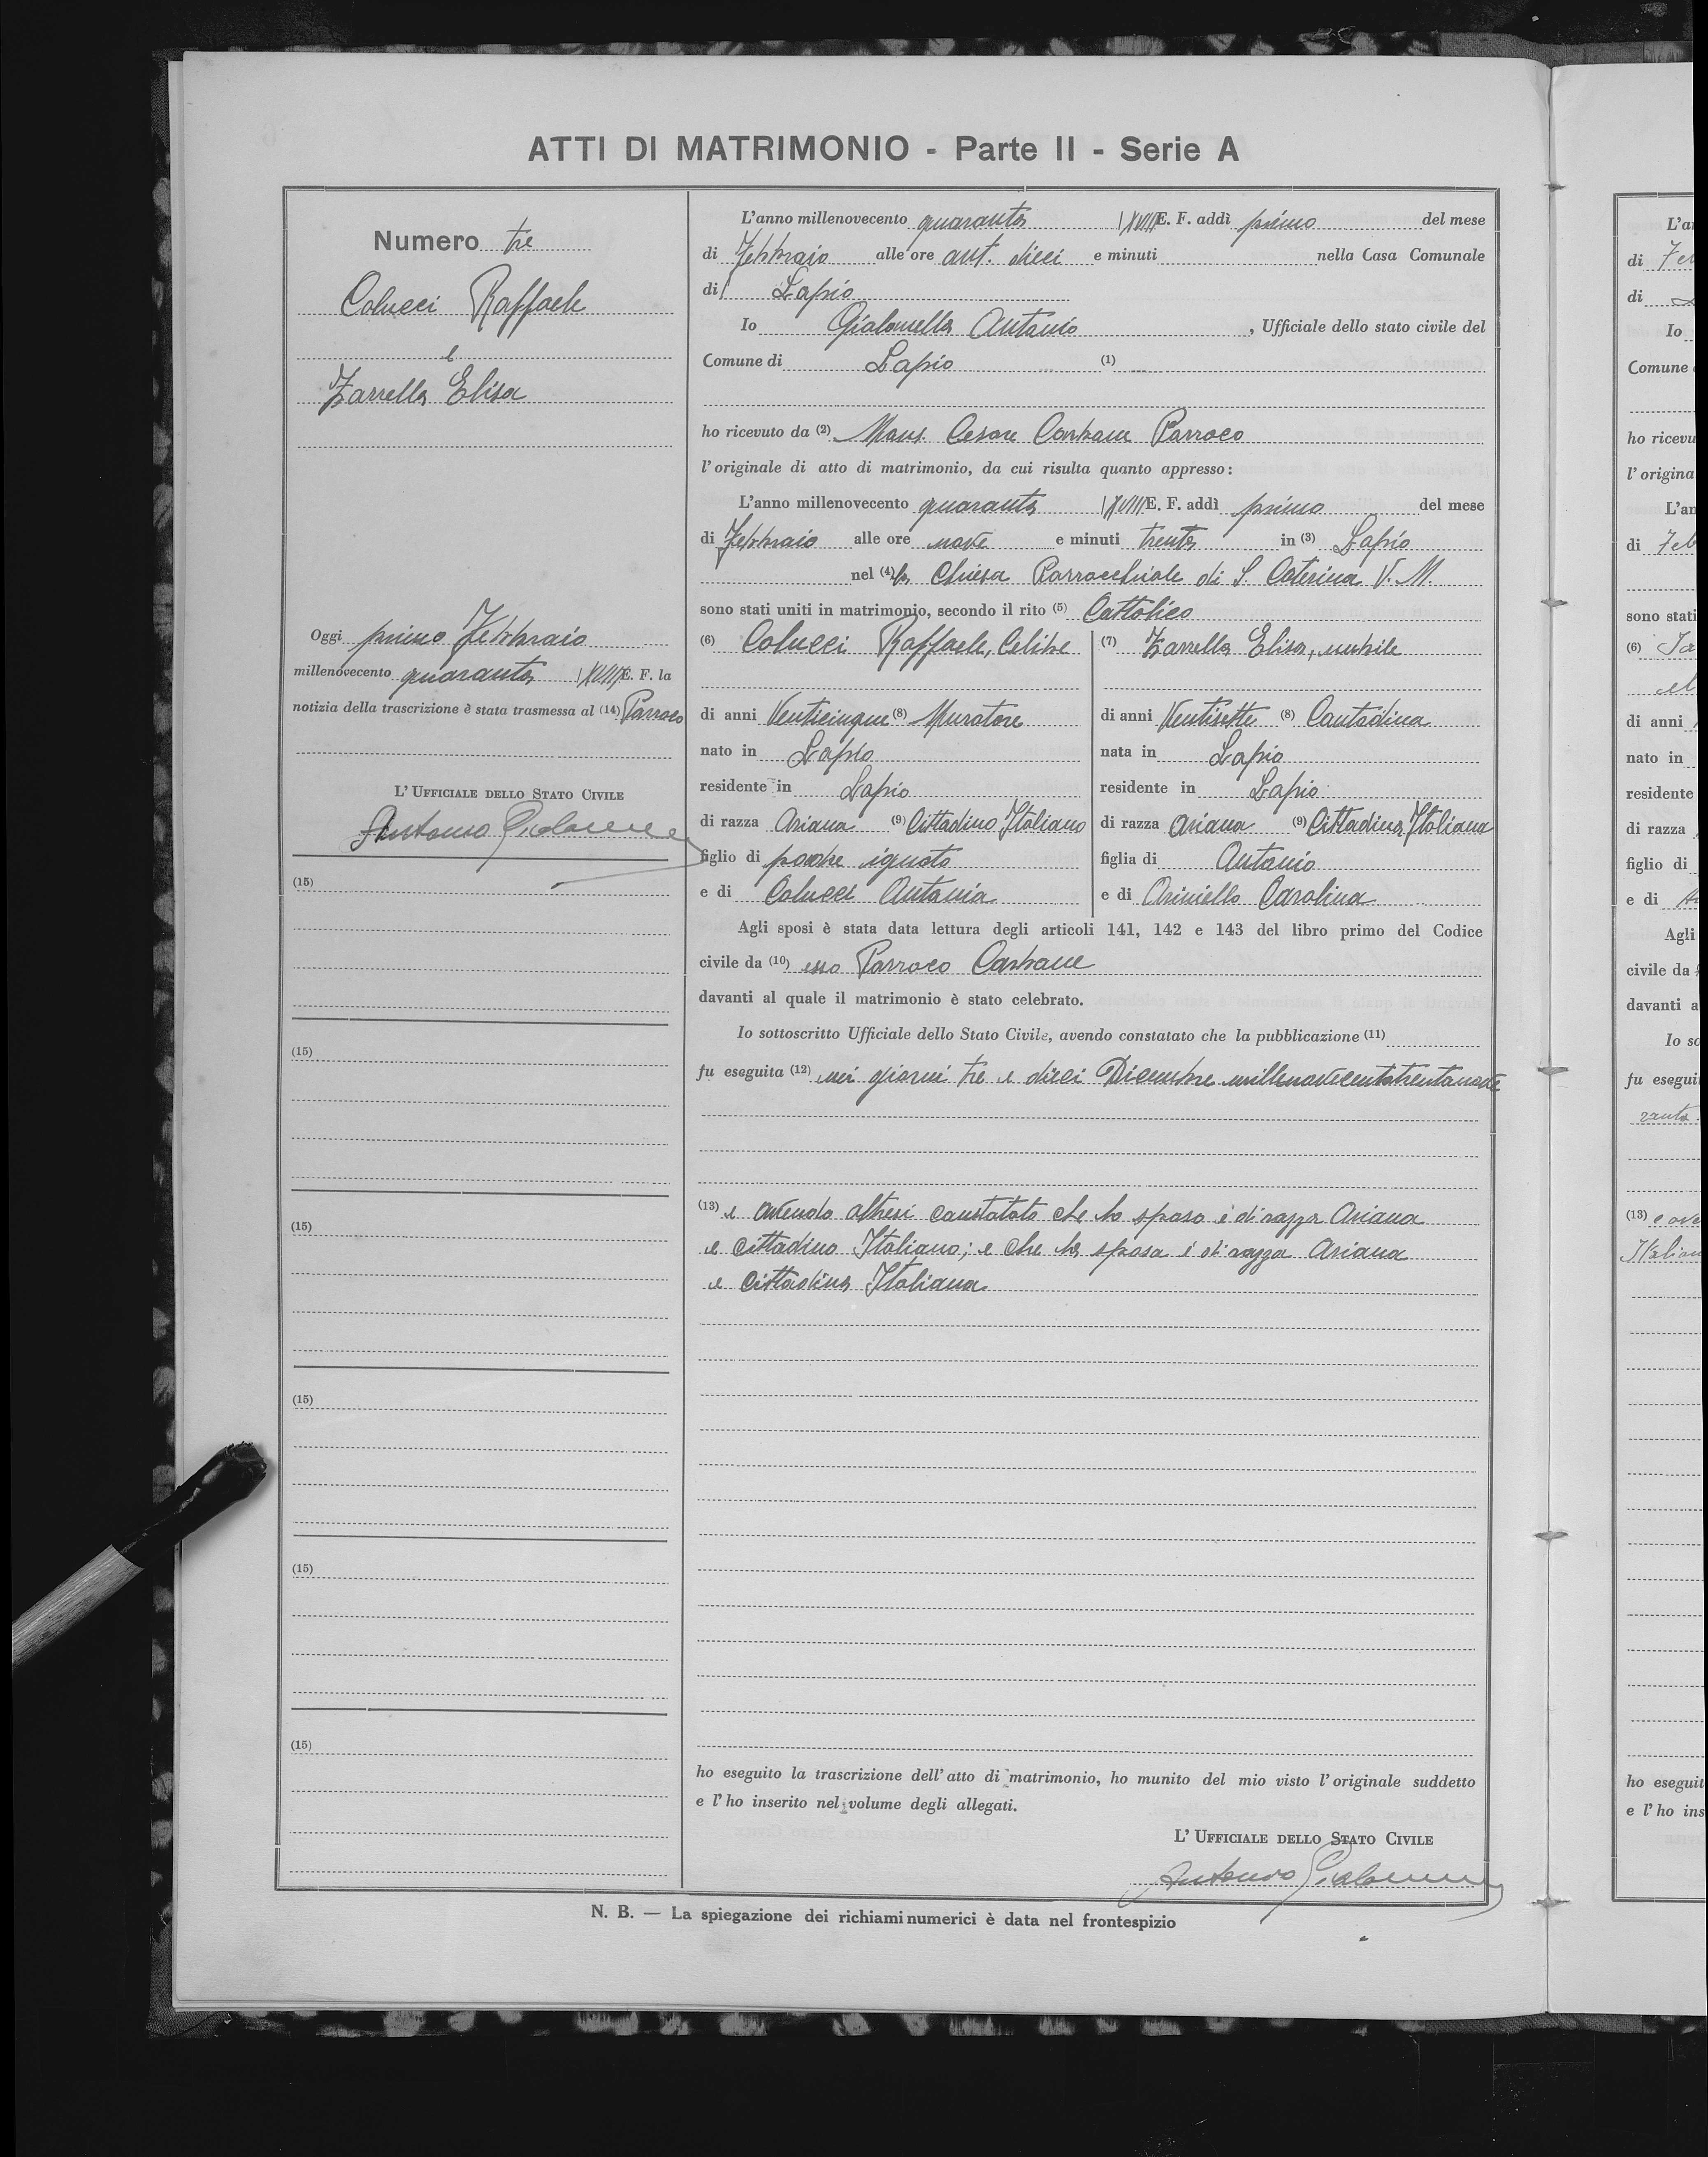 ATTI DI MATRIMONIO - Parte II - Serie A
Numero tre
Colucci Raffaele
e
Zarrella Elisa
Oggi primo Febbraio
millenovecento quaranta XVIII E. F. la
notizia della trascrizione è stata trasmessa al (14) Parroco
L' UFFICIALE DELLO STATO CIVILE
Antonio
(15)
(15)
(15)
(15)
(15)
(15)
L'anno millenovecento quaranta XVIII E. F. addì primo del mese
di Febbraio alle ore ant. dieci e minuti nella Casa Comunale
di Lapio
Io Gialonella Antonio, Ufficiale dello stato civile del
Comune di Lapio (1)
ho ricevuto da (2) Mons. Cesare Carbone Parroco
l'originale di atto di matrimonio, da cui risulta quanto appresso:
L'anno millenovecento quaranta XVIII E. F. addì primo del mese
di Febbraio alle ore nove e minuti trenta in (3) Lapio
nel (4) la Chiesa Parrocchiale di S. Caterina V. M.
sono stati uniti in matrimonio, secondo il rito (5) Cattolico
(6) Colucci Raffaele, Celibe
di anni Venticinque (8) Muratore
nato in Lapio
residente in Lapio
di razza Ariana (9) Cittadino Italiano
figlio di padre ignoto
e di Colucci Antonia
(7) Zarrella Elisa, nubile
di anni Ventisette (8) Contadina
nata in Lapio
residente in Lapio
di razza Ariana (9) Cittadina Italiana
figlia di Antonio
e di Ariniello Carolina
Agli sposi è stata data lettura degli articoli 141, 142 e 143 del libro primo del Codice
civile da (10) esso Parroco Carbone
davanti al quale il matrimonio è stato celebrato.
Io sottoscritto Ufficiale dello Stato Civile, avendo constatato che la pubblicazione (11)
fu eseguita (12) nei giorni tre e dieci Dicembre millenovecentotrentanove
(13) e avendo altresi constatato che lo sposo è di razza Ariana
e cittadino Italiano; e che la sposa è di razza Ariana
e cittadina Italiana
ho eseguito la trascrizione dell'atto di matrimonio, ho munito del mio visto l'originale suddetto
e l'ho inserito nel volume degli allegati.
L' UFFICIALE DELLO STATO CIVILE
Antonio
N. B. — La spiegazione dei richiami numerici è data nel frontespizio
L'an
di Feb
di
Io
Comune
ho ricevu
l'origina
L'an
di Feb
sono stati
(6)
di anni
nato in
residente
di razza
figlio di
e di
Agli
civile da
davanti a
Io so
fu esegui
(13) e ave
Italian
ho eseguit
e l'ho ins